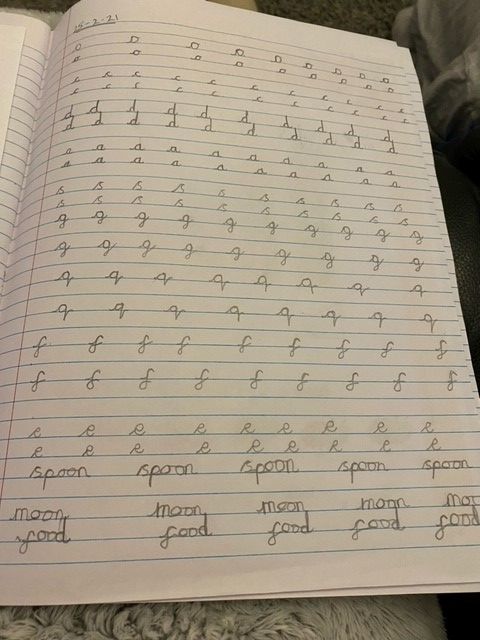 25-2-21
o o o o o o o o o
o o o o o o o o o
c c c c c c c c c c
c c c c c c c c c c
d d d d d d d d d d
d d d d d d d d d
a a a a a a a a a
a a a a a a a a a
s s s s s s s s s
s s s s s s s s s
g g g g g g g g g
g g g g g g g g g
q q q q q q q q
q q q q q q q q
f f f f f f f f f
f f f f f f f f f
e e e e e e e e e
e e e e e e e e e
spoon spoon spoon spoon spoon
moon moon moon moon moo
food food food food food